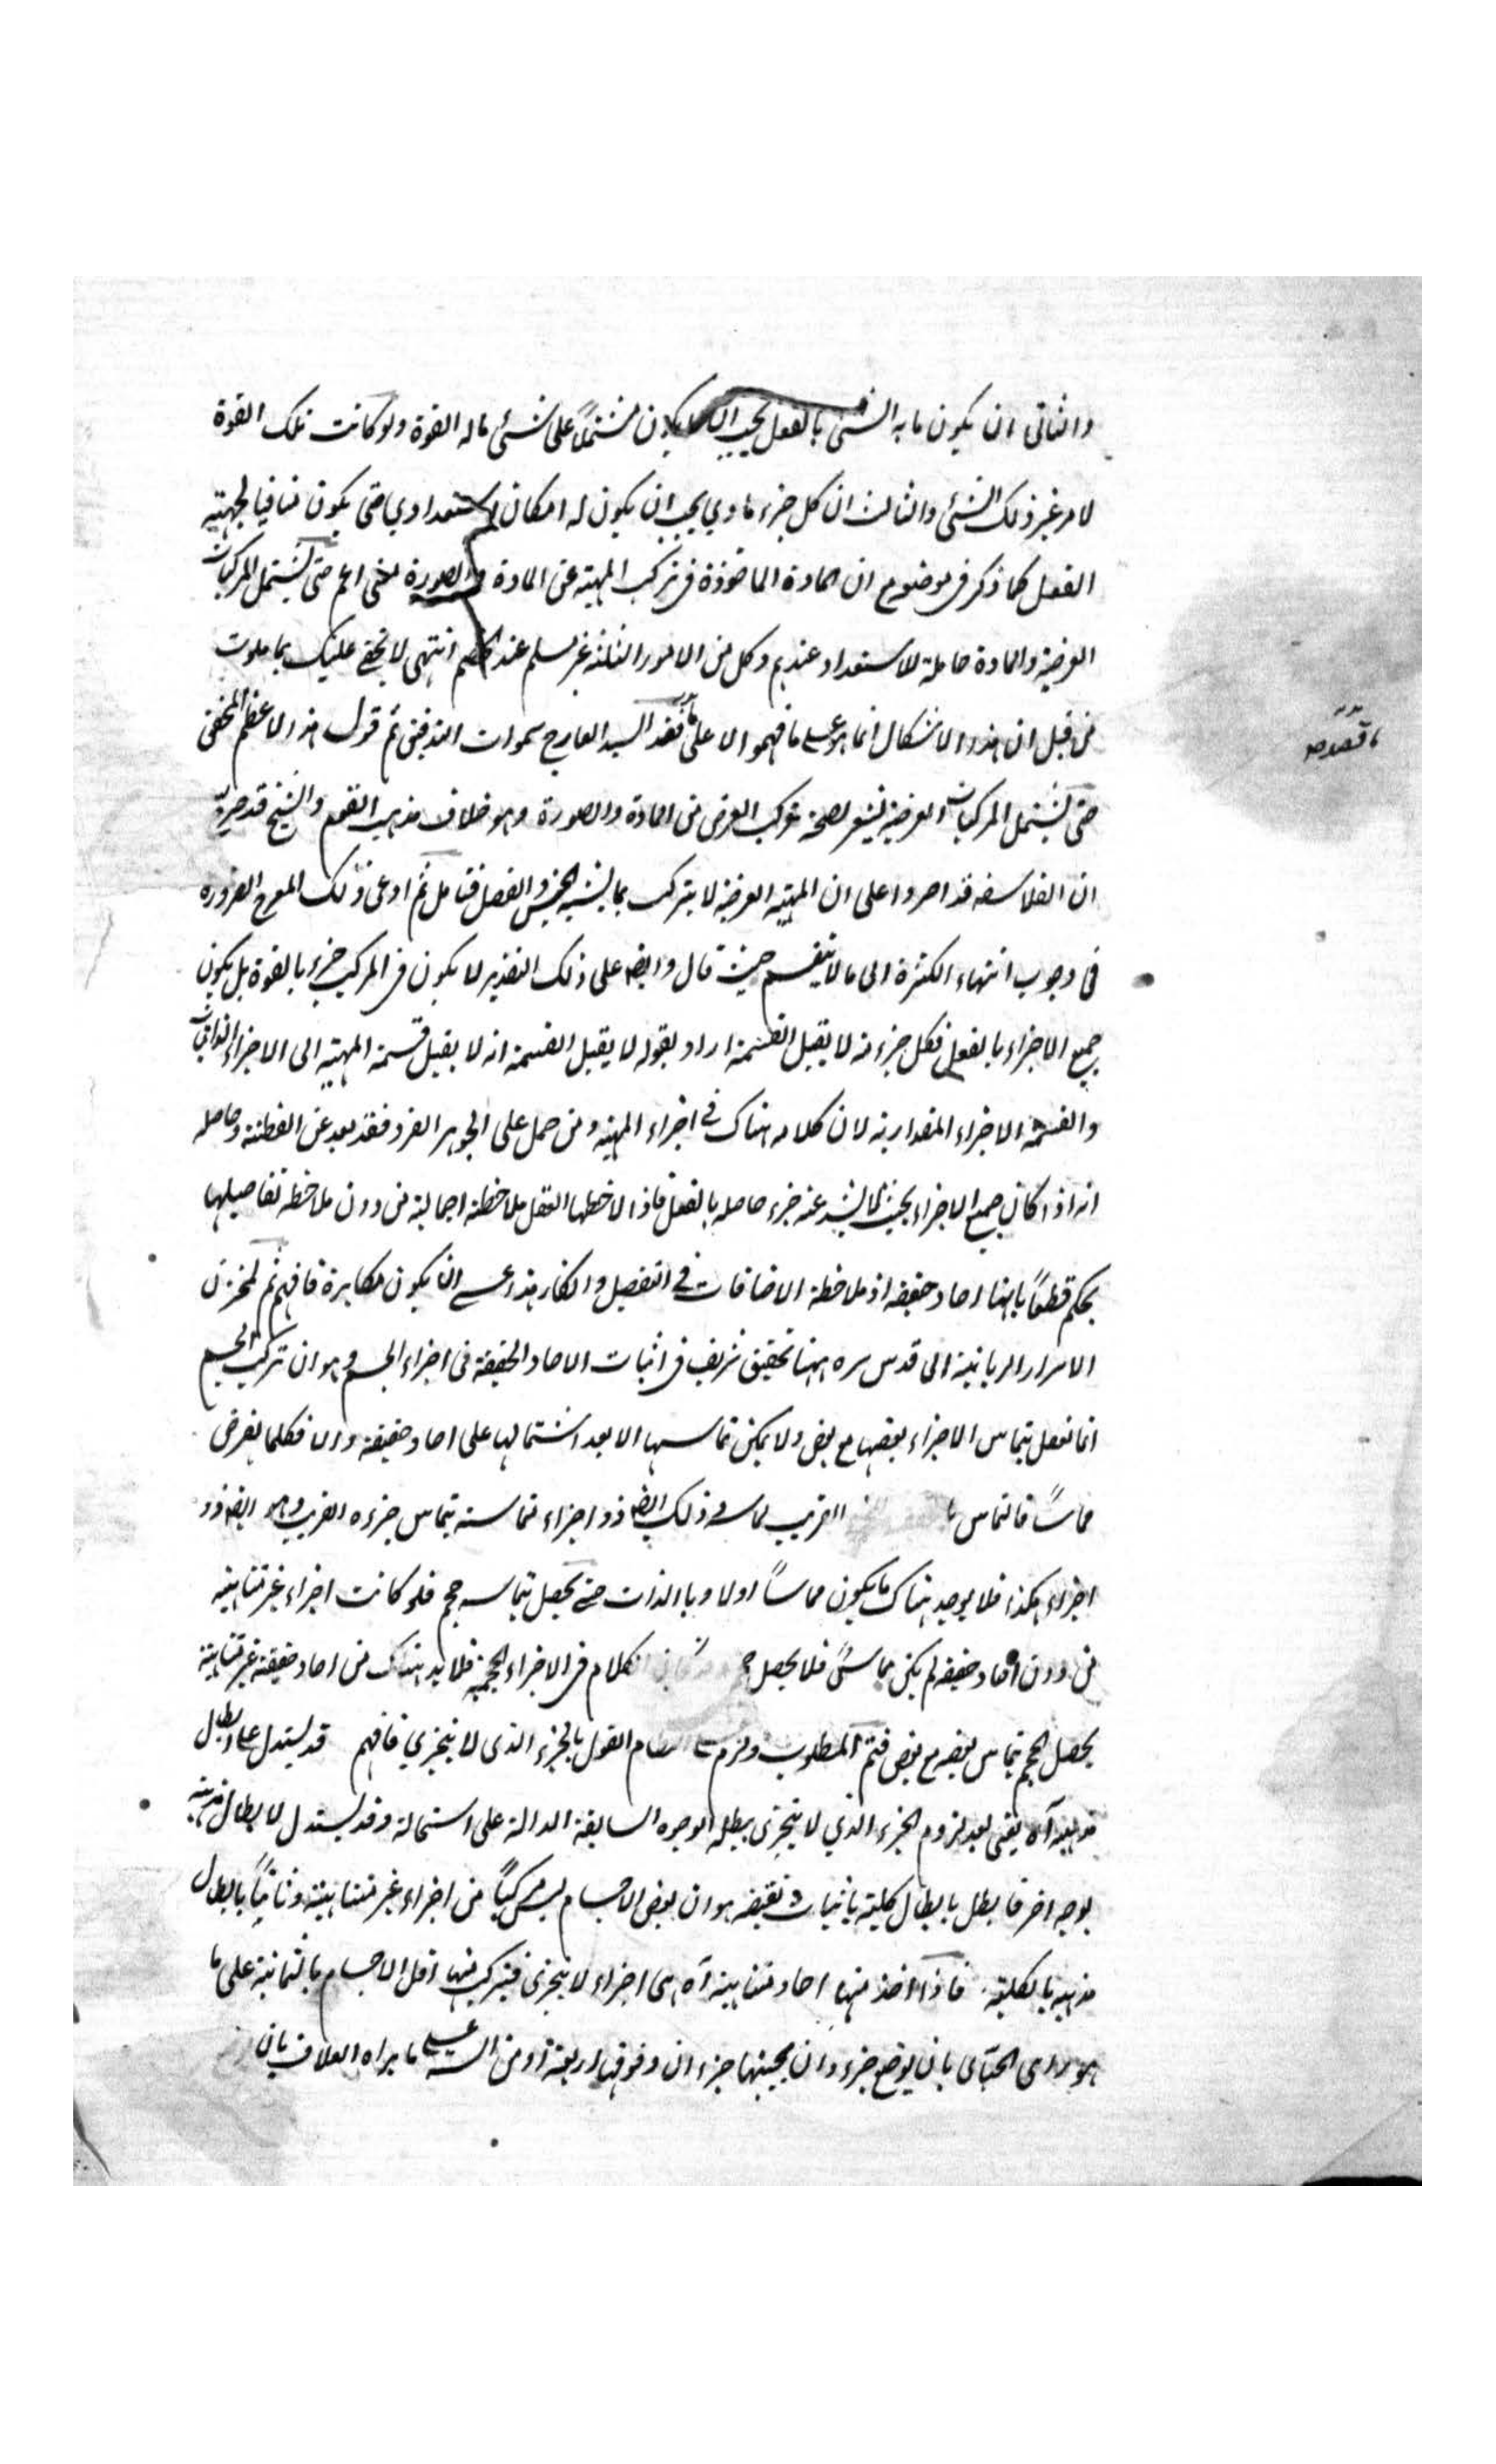 والثانى ان يكون ما به الشئ بالفعل يجب ان لا يكون مشتملاً على شئى ماله القوة ولو كانت تلك القوة
لامر غير ذلك الشئى والثالث ان كل جزء مادي يجب ان يكون له امكان استعدادي حتى يكون منافيا لجهته
الفعل كما ذكر فى موضوع ان المادة الماخوذة فى تركب المهية عن المادة والصورة اعم حتى يشتمل المركبات
العرضية والمادة حاملة للاستعداد عندهم وكل من الامور الثلثة غير مسلم عند الخصم انتهى لا يخفى عليك بما تلوت
من قبل ان هذه الاشكال انما هو على ما فهموا لا على ما قصده السيد العارج سموات التدقيق ثم قول هذا الاعظم المحقق
حتى يشتمل المركبات العرضية يشعر لصحة تركب العرض من المادة والصورة وهو خلاف مذهب القوم والشيخ قد صرح
ان الفلاسفه قد اصروا على ان المهية العرضية لا يتركب بما يشبه الجنس والفصل فتامل ثم ادعى ذلك الضروره
فى وجوب انتهاء الكثرة الى ما لا ينقسم حيث قال وايضا على ذلك التقدير لا يكون فى المركب جزء بالقوة بل يكون
جميع الاجزاء بالفعل فكل جزء منه لا يقبل القسمة اراد بقوله لا يقبل القسمة انه لا يقبل قسمة المهية الى الاجزاء الذاتيات
والقسمة الاجزاء المقدارية لان كلامه هناك فى اجزاء المهية ومن حمل على الجوهر الفرد فقد بعد عن الفطنة وحاصله
انه اذا كان جميع الاجزاء بحيث لا يشذ عنه جزء حاصله بالفعل فاذا لاحظها العقل ملاحظة اجمالية من دون ملاحظه تفاصيلها
يحكم قطعًا بانها احاد حقيقه اذ ملاحظة الاضافات فى التفصيل وانكار هذا عسى ان يكون مكابرة فافهم ثم لمخزن
الاسرار الربانية ابى قدس سره ههنا تحقيق شريف فى اثبات الاحاد الحقيقة فى اجزاء الجسم وهو ان تركيب الجسم
انما تعقل بتماس الاجزاء بعضها مع بعض ولا يمكن تماسها الا بعد اشتمالها على احاد حقيقة والا فكلما يفرض
مماسًا فالتماس القريب ذلك ايضا ذو اجزاء تماسه بتماس جزءه القريب وهو ايضا ذو
اجزاء هكذا فلا يوجد هناك ما يكون مماساً اولا وبالذات حتى يحصل بتماسه حجم فلو كانت اجزاء غير متناهية
من دون احاد حقيقه لم يكن مماسًا فلا يحصل الكلام فى الاجزاء الحجمية فلا بد هناك من احاد حقيقة غير متناهية
يحصل الحجم بتماس بعضه مع بعض فتم المطلوب ولزم على النظام القول بالجزء الذى لا يتجزي فافهم قد يستدل على ابطال
مذهبه آه يعنى بعد لزوم الجزء الذي لا يتجزى يبطله الوجوه السابقة الدالة على استحالة وقد يستدل لابطال مذهبه
بوجه اخر فابطل بابطال كليته باثبات نقيضه هو ان بعض الاجسام ليس مركبًا من اجزاء غير متناهية وثانيًا بابطال
مذهبه بالكلية فاذا اخذ منها احاد متناهية آه هى اجزاء لا يتجزى فيتركب منها اقل الاجسام بالثمانية على ما
هو راى الجبائى بان يوضع جزءان بجنبهما جزءان وفوقها اربعة او من الستة على ما يراه العلاف بان
ما قصده